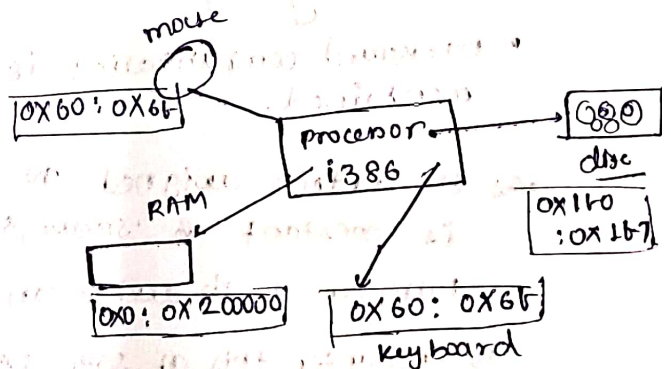 mouse
0X60: 0X6F
processor
i386
disc
0X1F0
:0X1F7
RAM
0X0: 0X200000
0X60: 0X6F
keyboard